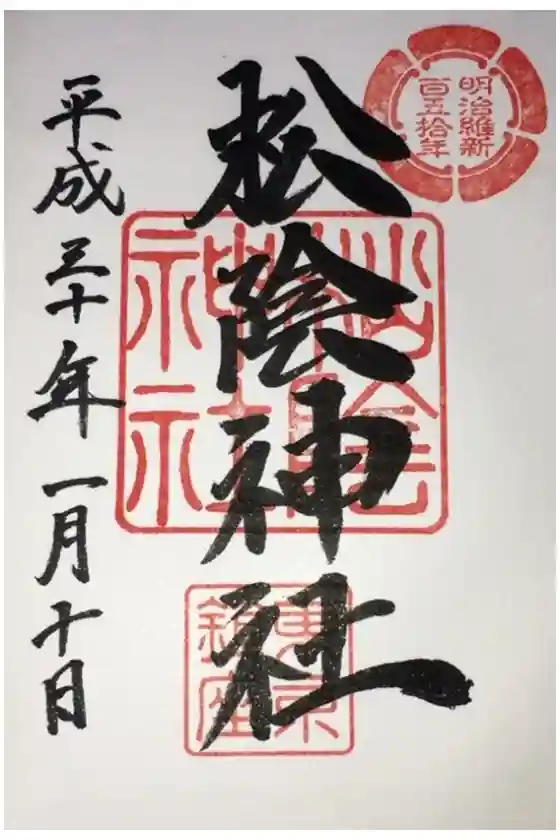 明治維新
百五拾年
松陰神社
松陰
神社
東京
鎮座
平成三十年一月十日